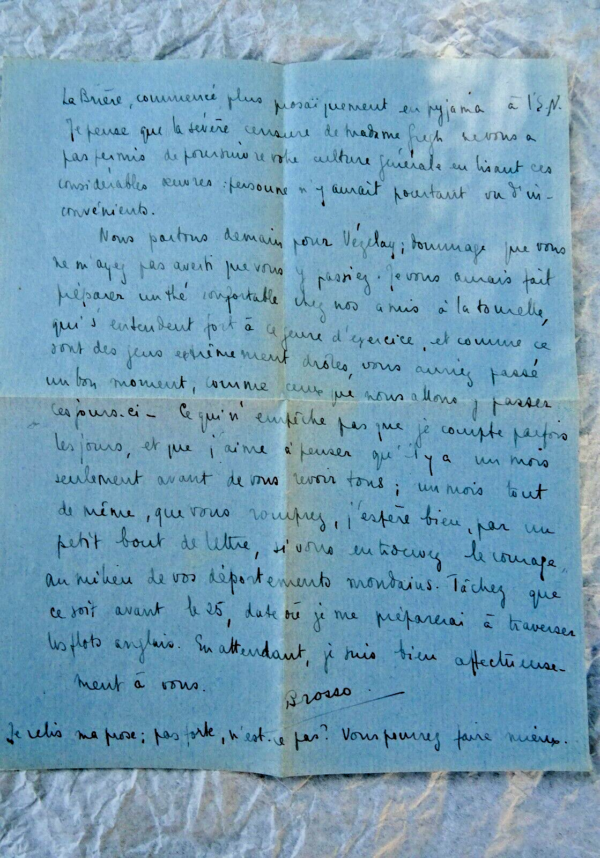 La Brière, commencé plus prosaïquement en pyjama à l'E.N.
Je pense que la sévère censure de madame Gregh ne vous a
pas permis de poursuivre votre culture générale en lisant ces
considérables œuvres : personne n'y aurait pourtant vu d'in-
convénients.
Nous partons demain pour Vézelay ; dommage que vous
ne m'ayez pas averti que vous y passiez. Je vous aurais fait
préparer un thé confortable chez nos amis à la tourelle,
qui s'entendent fort à ce genre d'exercice, et comme ce
sont des gens extrêmement drôles, vous auriez passé
un bon moment, comme ceux que nous allons y passer
ces jours-ci – Ce qui n'empêche pas que je compte parfois
les jours, et que j'aime à penser qu'il y a un mois
seulement avant de vous revoir tous ; un mois tout
de même, que vous romprez, j'espère bien, par un
petit bout de lettre, si vous en trouvez le courage
au milieu de vos départements mondains. Tâchez que
ce soit avant le 25, date où je me préparerai à traverser
les flots anglais. En attendant, je suis bien affectueuse-
ment à vous.
Brosso
Je relis ma prose ; pas forte, n'est-ce pas ? Vous pourrez faire mieux.